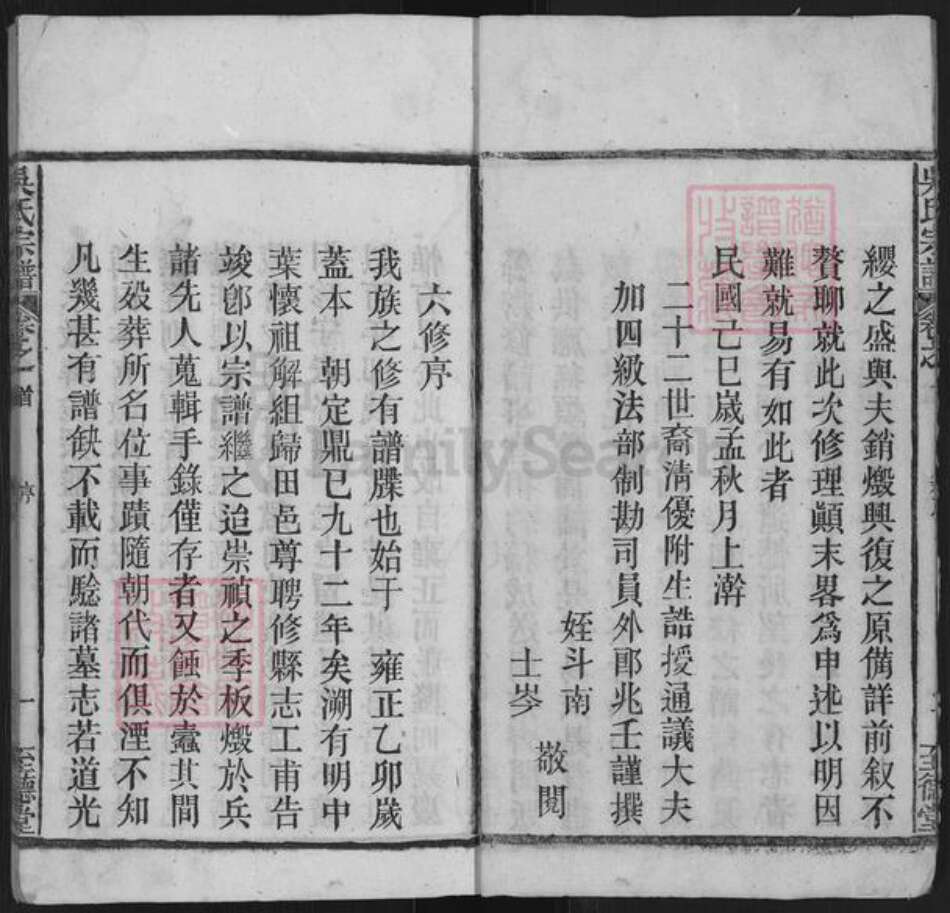 吳氏宗譜
纓之盛與夫銷燬興復之原備詳前叙不
贅聊就此次修理顚末畧爲申述以明因
難就易有如此者
民國己巳嵗孟秋月上澣
二十二世裔淸優附生誥授通議大夫
加四級法部制勘司員外郎兆壬謹撰
姪斗南
士岑
敬閱
至德堂
六修序
我族之修有譜牒也始于 雍正乙卯歲
蓋本 朝定鼎已九十二年矣溯有明中
葉懷祖解組歸田邑尊聘修縣志工甫告
竣卽以宗譜繼之迨崇禎之季板燬於兵
諸先人蒐輯手錄僅存者又蝕於蠹其間
生殁葬所名位事蹟隨朝代而俱湮不知
凡幾甚有譜缺不載而騐諸墓志若道光
吳氏宗譜
卷之一
譜序
一
至德堂
FamilySearch